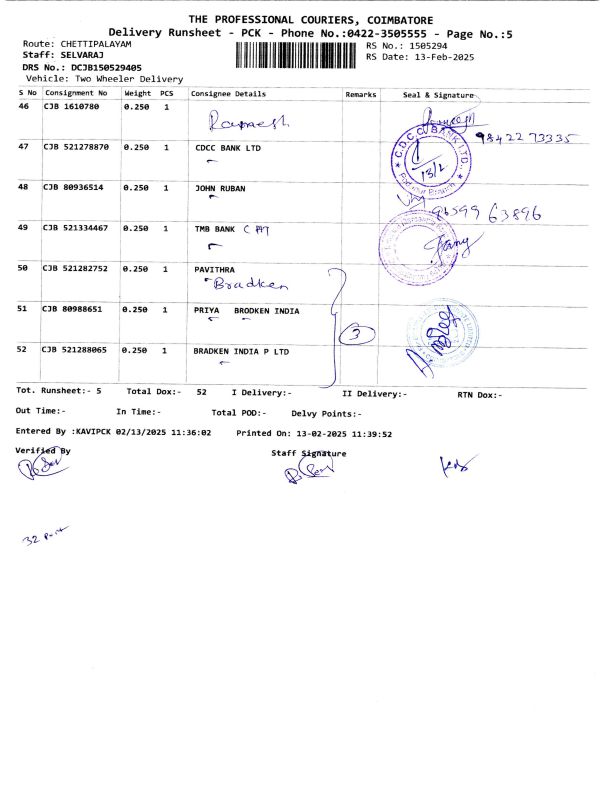 THE PROFESSIONAL COURIERS, COIMBATORE
Delivery Runsheet - PCK - Phone No.:0422-3505555 - Page No.:5
Route: CHETTIPALAYAM RS No.: 1505294
Staff: SELVARAJ RS Date: 13-Feb-2025
DRS No.: DCJB150529405
Vehicle: Two Wheeler Delivery
S No Consignment No Weight PCS Consignee Details Remarks Seal & Signature
46 CJB 1610780 0.250 1
Ramesh
9842273335
47 CJB 521278870 0.250 1 CDCC BANK LTD
C.D.C.C. BANK LTD.
13/2
48 CJB 80936514 0.250 1 JOHN RUBAN
9659963896
49 CJB 521334467 0.250 1 TMB BANK
50 CJB 521282752 0.250 1 PAVITHRA
Bradken
51 CJB 80988651 0.250 1 PRIYA BRODKEN INDIA
3
52 CJB 521288065 0.250 1 BRADKEN INDIA P LTD
Tot. Runsheet:- 5 Total Dox:- 52 I Delivery:- II Delivery:- RTN Dox:-
Out Time:- In Time:- Total POD:- Delvy Points:-
Entered By :KAVIPCK 02/13/2025 11:36:02 Printed On: 13-02-2025 11:39:52
Verified By Staff Signature
32